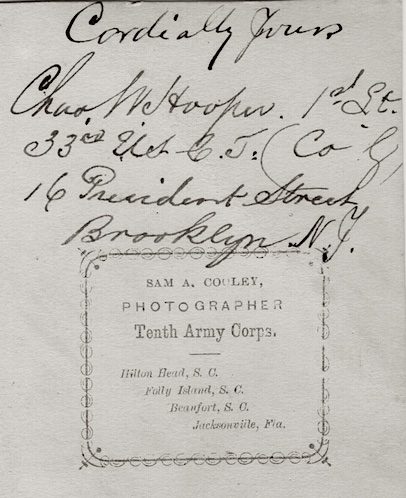 Cordially Yours
Chas. W. Hooper. 1st Lt.
33rd U.S.C.T. (Co G)
16 President Street
Brooklyn N.Y.
SAM A. COOLEY,
PHOTOGRAPHER
Tenth Army Corps.
Hilton Head, S. C.
Folly Island, S. C.
Beaufort, S. C.
Jacksonville, Fla.